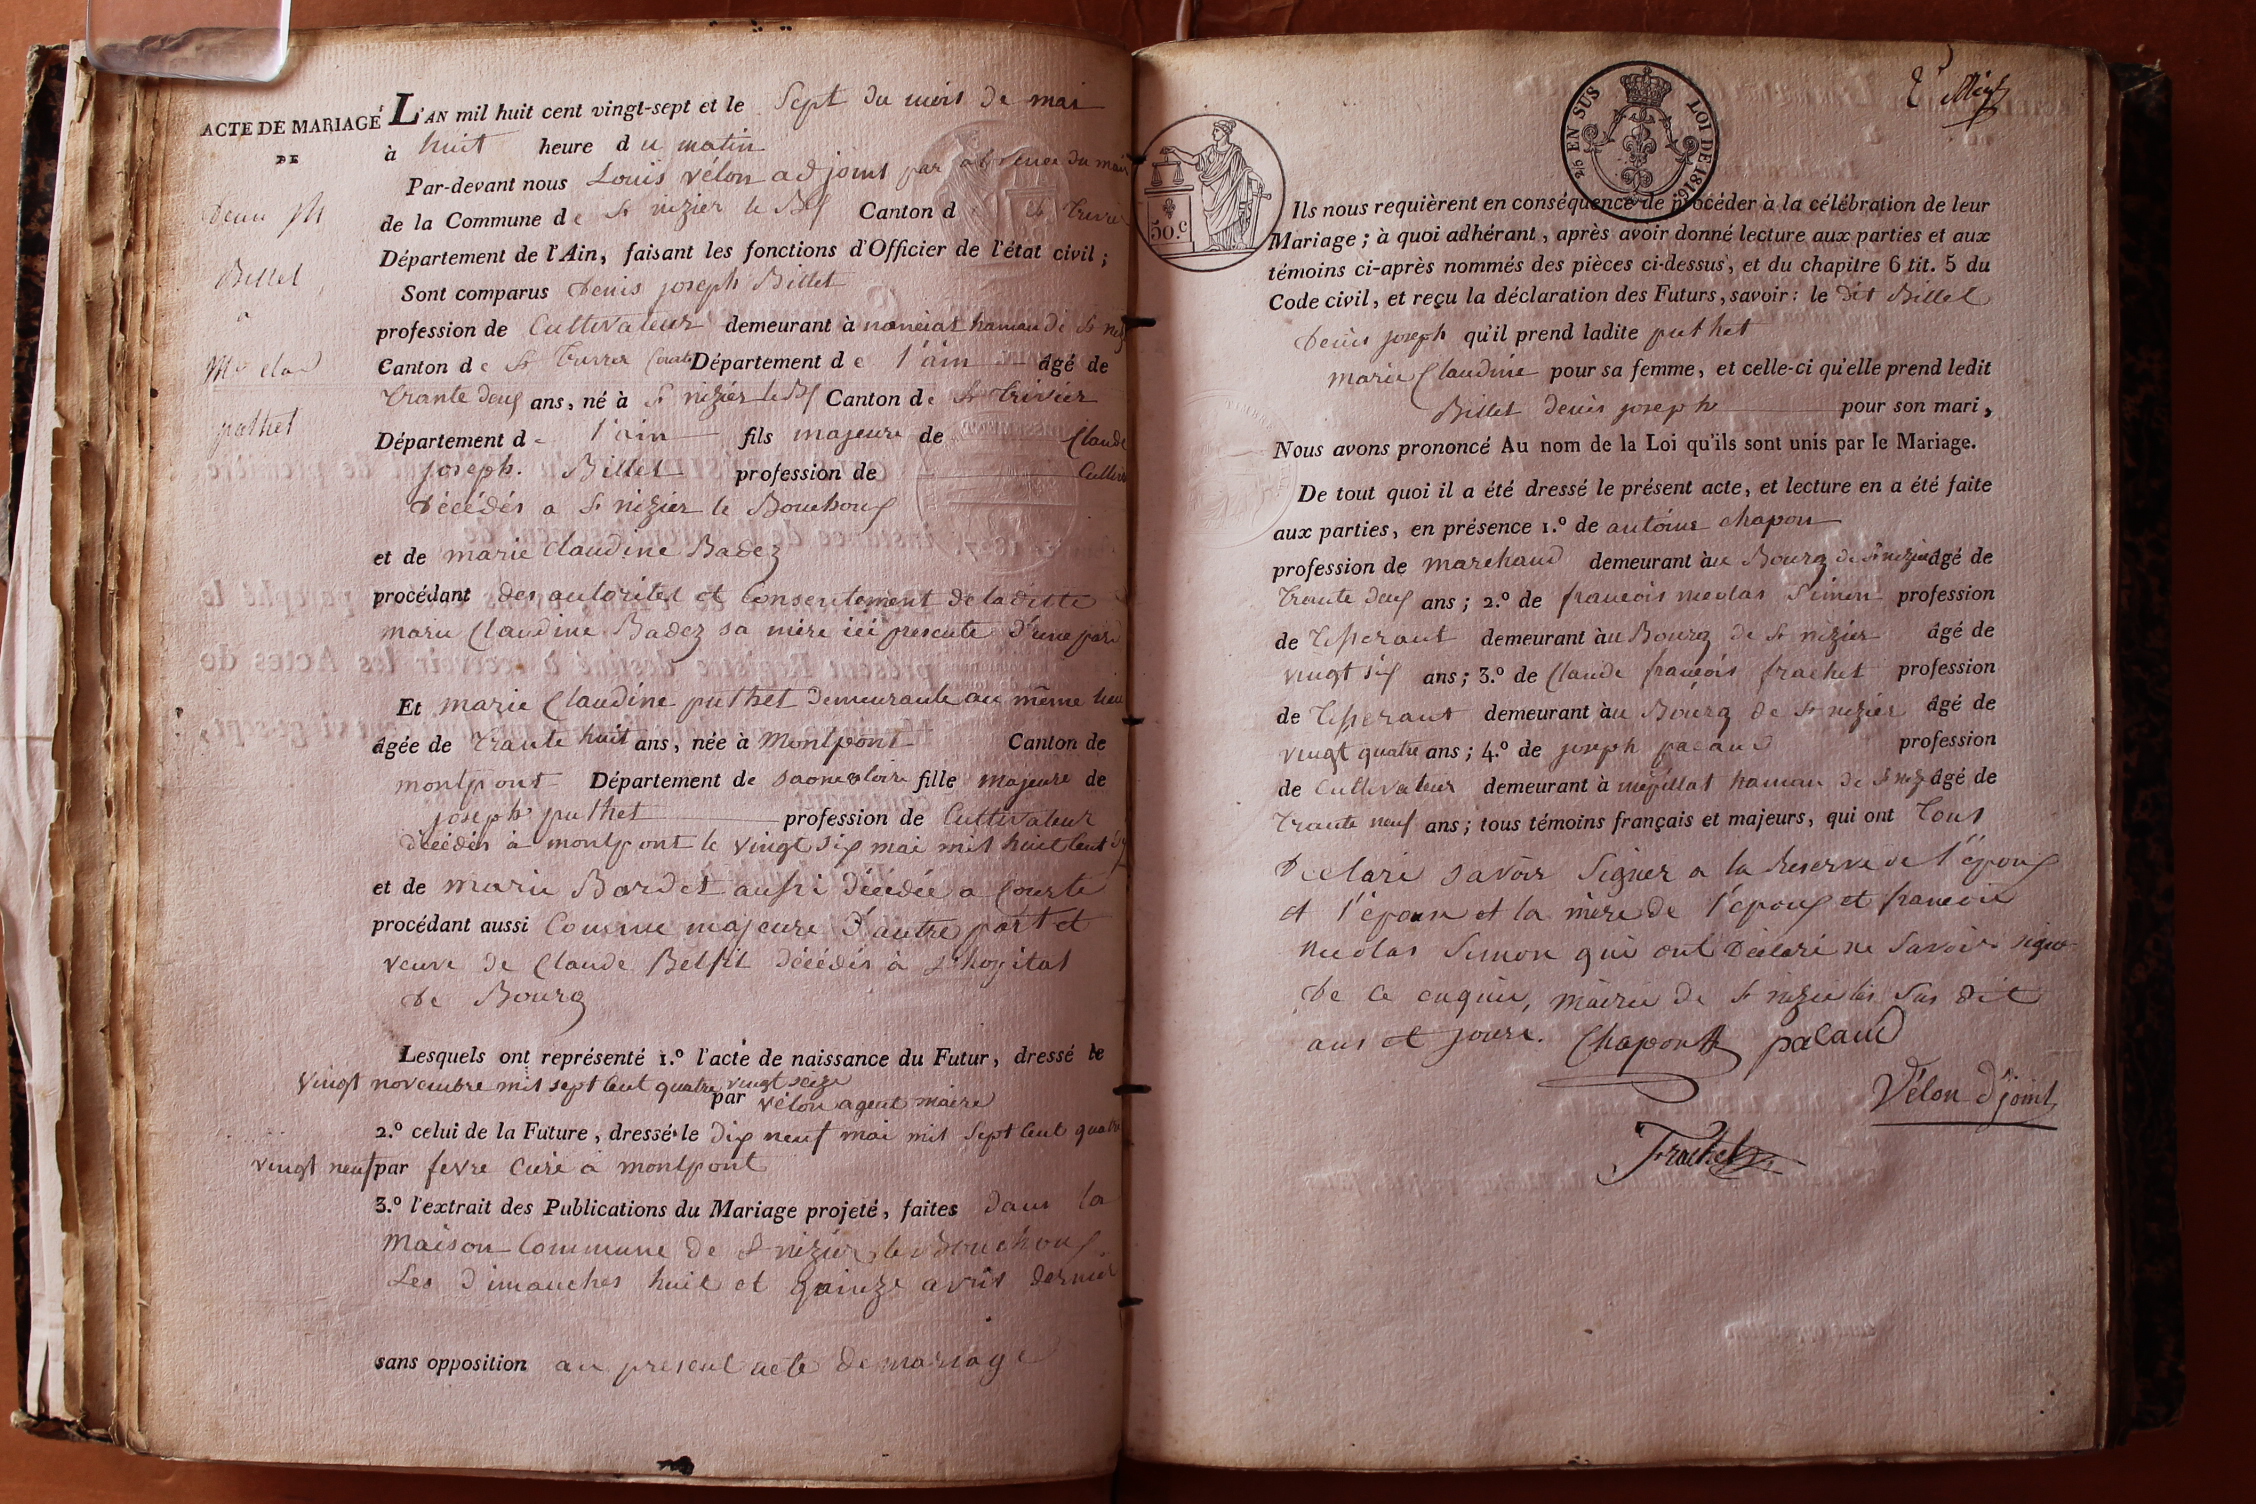 ACTE DE MARIAGE
DE
Denis Jh
Billet
a
Me clad
puthet
L'AN mil huit cent vingt-sept et le Sept du mois de mai
à huit heure du matin
Par-devant nous Louis vélon adjoint par absence du maire
de la Commune de St nizier le Bf Canton d St Trivier
Département de l'Ain, faisant les fonctions d'Officier de l'état civil ;
Sont comparus denis joseph Billet
profession de Cultivateur demeurant à hamau de St niz
Canton de St Département de l'ain âgé de
trante deux ans, né à St nizier le Bf Canton de St Trivier
Département de l'ain fils majeure de Claude
joseph. Billet profession de Cultiv
décédés a St nizier le Bouchoux
et de marie Claudine Badez
procédant des autorités et Consentement de laditte
marie Claudine Badez sa mère ici presente d'une part
Et marie Claudine puthet demeurante au même lieu
âgée de trante huit ans, née à Montpont Canton de
montpont Département de saone & loire fille majeure de
joseph puthet profession de Cultivateur
décédés à montpont le vingt six mai mil huit Cent
et de marie Bardet aussi décédée a Courte
procédant aussi Comme majeure d'autre part et
veuve de Claude décédés à l'hopital
de Bourg
Lesquels ont représenté 1.º l'acte de naissance du Futur, dressé le
vingt novembre mil sept Cent quatre vingt seize
par vélon agent maire
2.º celui de la Future, dressé le dix neuf mai mil Sept Cent quatre
vingt neuf par fevre Curé a montpont
3.º l'extrait des Publications du Mariage projeté, faites dans la
maison Commune de St nizier le Bouchoux
Les dimanches huit et Quinze avril dernier
sans opposition au present acte de mariage
25 EN SUS LOI DE 1816.
50.c
Ils nous requièrent en conséquence de procéder à la célébration de leur
Mariage ; à quoi adhérant, après avoir donné lecture aux parties et aux
témoins ci-après nommés des pièces ci-dessus, et du chapitre 6 tit. 5 du
Code civil, et reçu la déclaration des Futurs, savoir : le dit Billet
denis joseph qu'il prend ladite puthet
marie Claudine pour sa femme, et celle-ci qu'elle prend ledit
Billet denis joseph pour son mari,
Nous avons prononcé Au nom de la Loi qu'ils sont unis par le Mariage.
De tout quoi il a été dressé le présent acte, et lecture en a été faite
aux parties, en présence 1.º de antoine chapon
profession de marchand demeurant àu Bourg de St nizier âgé de
trante deux ans ; 2.º de francois nicolas Simon profession
de Tisserant demeurant àu Bourg de St nizier âgé de
vingt six ans ; 3.º de Claude francois frachet profession
de Tisserant demeurant àu Bourg de St nizier âgé de
vingt quatre ans ; 4.º de joseph pacaud profession
de Cultivateur demeurant à hamau de St niz âgé de
trante neuf ans ; tous témoins français et majeurs, qui ont tous
declaré savoir Signer a la Reserve de l'époux
et l'épouse et la mère de l'époux et francois
nicolas Simon qui ont déclaré ne Savoir signé
de ce enquis, mairie de St nizier les Sus dit
ans et jours. Chapon pacaud
Vélon djoint
Frachet